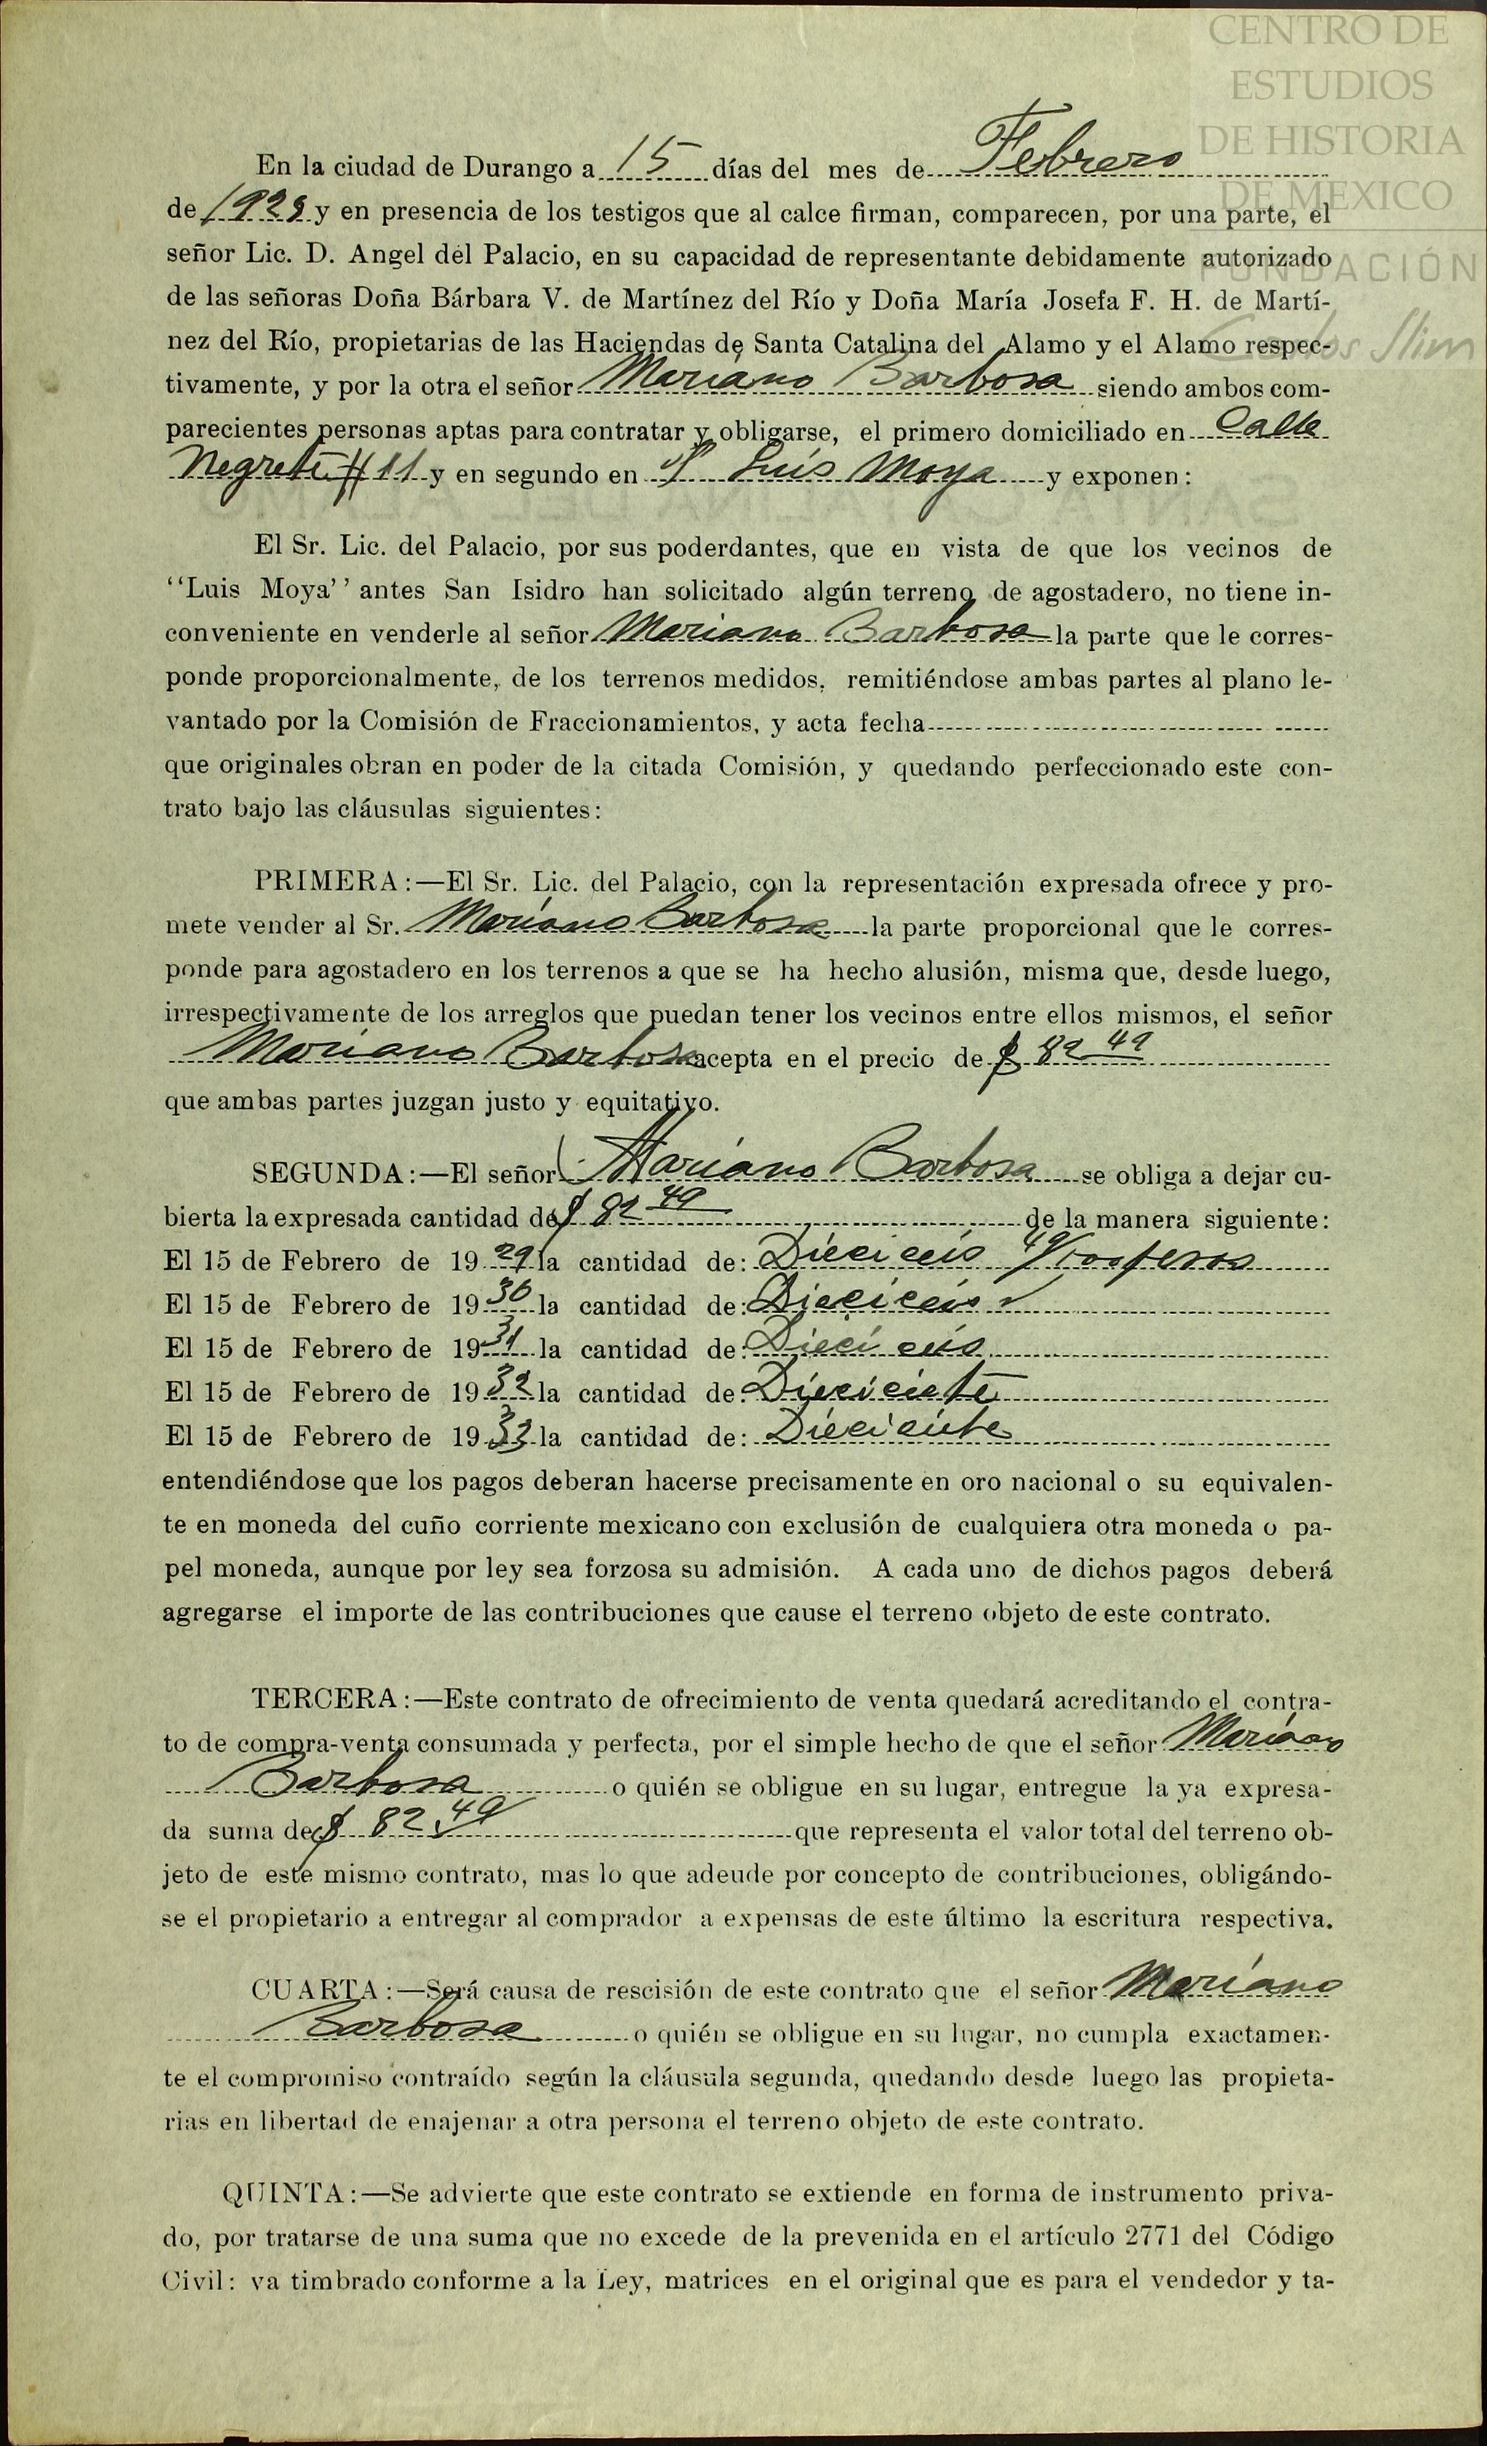 CENTRO DE
ESTUDIOS
DE HISTORIA
DE MEXICO
FUNDACIÓN
Carlos Slim
En la ciudad de Durango a 15 días del mes de Febrero
de y en presencia de los testigos que al calce firman, comparecen, por una parte, el
señor Lic. D. Angel del Palacio, en su capacidad de representante debidamente autorizado
de las señoras Doña Bárbara V. de Martínez del Río y Doña María Josefa F. H. de Martí-
nez del Río, propietarias de las Haciendas de Santa Catalina del Alamo y el Alamo respec-
tivamente, y por la otra el señor Mariano Barbosa siendo ambos com-
parecientes personas aptas para contratar y obligarse, el primero domiciliado en Calle
Negrete # 11 y en segundo en Luis Moya y exponen:
El Sr. Lic. del Palacio, por sus poderdantes, que en vista de que los vecinos de
‘‘Luis Moya’’ antes San Isidro han solicitado algún terreno de agostadero, no tiene in-
conveniente en venderle al señor Mariano Barbosa la parte que le corres-
ponde proporcionalmente, de los terrenos medidos, remitiéndose ambas partes al plano le-
vantado por la Comisión de Fraccionamientos, y acta fecha
que originales obran en poder de la citada Comisión, y quedando perfeccionado este con-
trato bajo las cláusulas siguientes:
PRIMERA:—El Sr. Lic. del Palacio, con la representación expresada ofrece y pro-
mete vender al Sr. Mariano Barbosa la parte proporcional que le corres-
ponde para agostadero en los terrenos a que se ha hecho alusión, misma que, desde luego,
irrespectivamente de los arreglos que puedan tener los vecinos entre ellos mismos, el señor
Mariano Barbosa acepta en el precio de $ 82 49
que ambas partes juzgan justo y equitativo.
SEGUNDA:—El señor Mariano Barbosa se obliga a dejar cu-
bierta la expresada cantidad de $ 82 49 de la manera siguiente:
El 15 de Febrero de 19 29 la cantidad de: Dieciceis 49/100 pesos
El 15 de Febrero de 19 30 la cantidad de: Dieciceis
El 15 de Febrero de 19 31 la cantidad de: Dieciceis
El 15 de Febrero de 19 32 la cantidad de: Dieciciete
El 15 de Febrero de 19 33 la cantidad de: Dieciciete
entendiéndose que los pagos deberan hacerse precisamente en oro nacional o su equivalen-
te en moneda del cuño corriente mexicano con exclusión de cualquiera otra moneda o pa-
pel moneda, aunque por ley sea forzosa su admisión. A cada uno de dichos pagos deberá
agregarse el importe de las contribuciones que cause el terreno objeto de este contrato.
TERCERA:—Este contrato de ofrecimiento de venta quedará acreditando el contra-
to de compra-venta consumada y perfecta, por el simple hecho de que el señor Mariano
Barbosa o quién se obligue en su lugar, entregue la ya expresa-
da suma de $ 82.49 que representa el valor total del terreno ob-
jeto de este mismo contrato, mas lo que adeude por concepto de contribuciones, obligándo-
se el propietario a entregar al comprador a expensas de este último la escritura respectiva.
CUARTA:—Será causa de rescisión de este contrato que el señor Mariano
Barbosa o quién se obligue en su lugar, no cumpla exactamen-
te el compromiso contraído según la cláusula segunda, quedando desde luego las propieta-
rias en libertad de enajenar a otra persona el terreno objeto de este contrato.
QUINTA:—Se advierte que este contrato se extiende en forma de instrumento priva-
do, por tratarse de una suma que no excede de la prevenida en el artículo 2771 del Código
Civil: va timbrado conforme a la Ley, matrices en el original que es para el vendedor y ta-